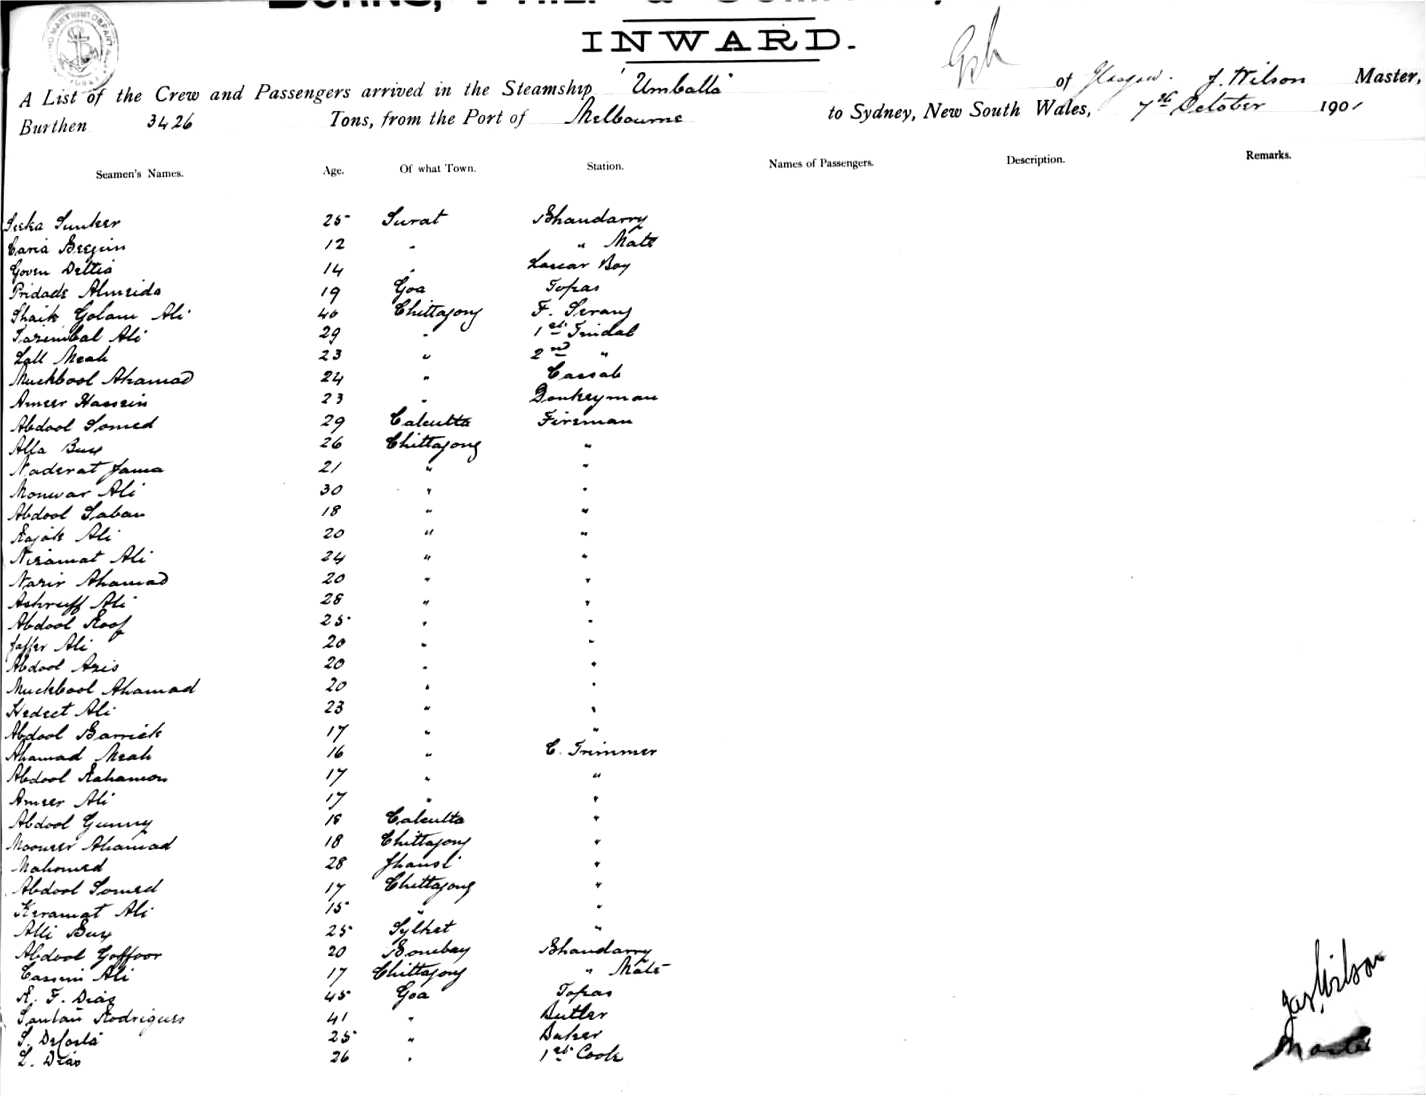 INWARD.
A List of the Crew and Passengers arrived in the Steamship "Umballa" of Glasgow. J. Wilson Master,
Burthen 3426 Tons, from the Port of Melbourne to Sydney, New South Wales, 7th October 1901
Seamen's Names. Age. Of what Town. Station. Names of Passengers. Description. Remarks.
Sunker 25 Surat Bhandarry
12 " " Mate
14 " Lascar Boy
Almeida 19 Goa Topas
Shaik Golam Ali 40 Chittagong F. Serang
Ali 29 " 1st Tindal
Lall Meah 23 " 2nd "
Muckbool Ahamad 24 " Cassab
Ameer Hassein 23 " Donkeyman
Abdool Somed 29 Calcutta Fireman
Alfa Bux 26 Chittagong "
Naderat Jama 21 " "
Monwar Ali 30 " "
Abdool Saban 18 " "
Rajak Ali 20 " "
Niramat Ali 24 " "
Nazir Ahamad 20 " "
Ashruff Ali 28 " "
Abdool Roof 25 " "
Jaffer Ali 20 " "
Abdool Azis 20 " "
Muckbool Ahamad 20 " "
Hedeet Ali 23 " "
Abdool Barrick 17 " "
Ahamad Meah 16 " C. Trimmer
Abdool Rahamon 17 " "
Ameer Ali 17 " "
Abdool Gunny 18 Calcutta "
Mooneer Ahamad 18 Chittagong "
Mahomed 28 Jhansi "
Abdool Somed 17 Chittagong "
Keramat Ali 15 " "
Alli Bux 25 Sylhet "
Abdool Goffoor 20 Bombay Bhandarry
Cassim Ali 17 Chittagong " Mate
R. F. Dias 45 Goa Topas
Santan Rodrigues 41 " Butler
S. DeCosta 25 " Baker
L. Dias 26 " 1st Cook
Jas Wilson
Master